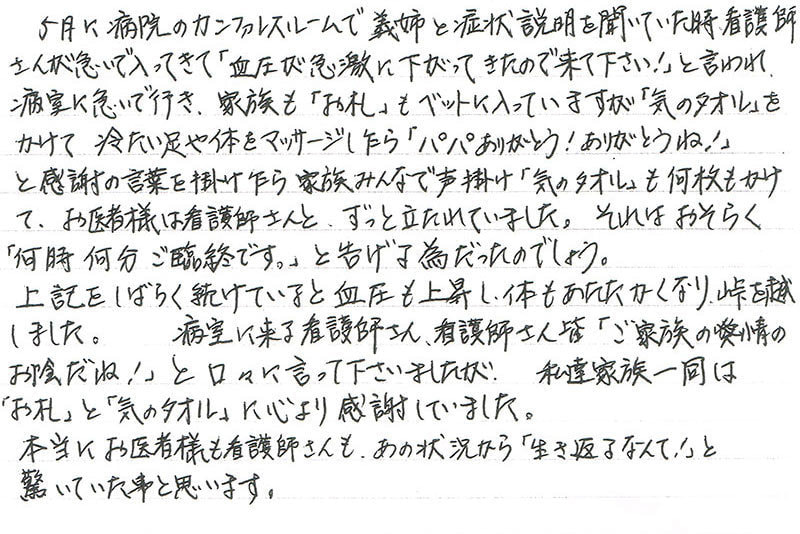 5月に病院のカンファレスルームで義姉と症状説明を聞いていた時看護師
さんが急いで入ってきて「血圧が急激に下がってきたので来て下さい!」と言われ、
病室に急いで行き、家族も「お札」もベットに入っていますが「気のタオル」を
かけて 冷たい足や体をマッサージしたら「パパありがとう!ありがとうね!」
と感謝の言葉を掛けたら 家族みんなで声掛け「気のタオル」も何枚もかけ
て、お医者様は看護師さんと、ずっと立たれていました。それはおそらく
「何時何分ご臨終です。」と告げる為だったのでしょう。
上記をしばらく続けていると血圧も上昇し、体もあたたかくなり、峠を越
しました。 病室に来る看護師さん、看護師さん皆「ご家族の愛情の
お陰だね!」と口々に言って下さいましたが、 私達家族一同は
「お札」と「気のタオル」に心より感謝していました。
本当にお医者様も看護師さんも、あの状況から「生き返るなんて!」と
驚いていた事と思います。